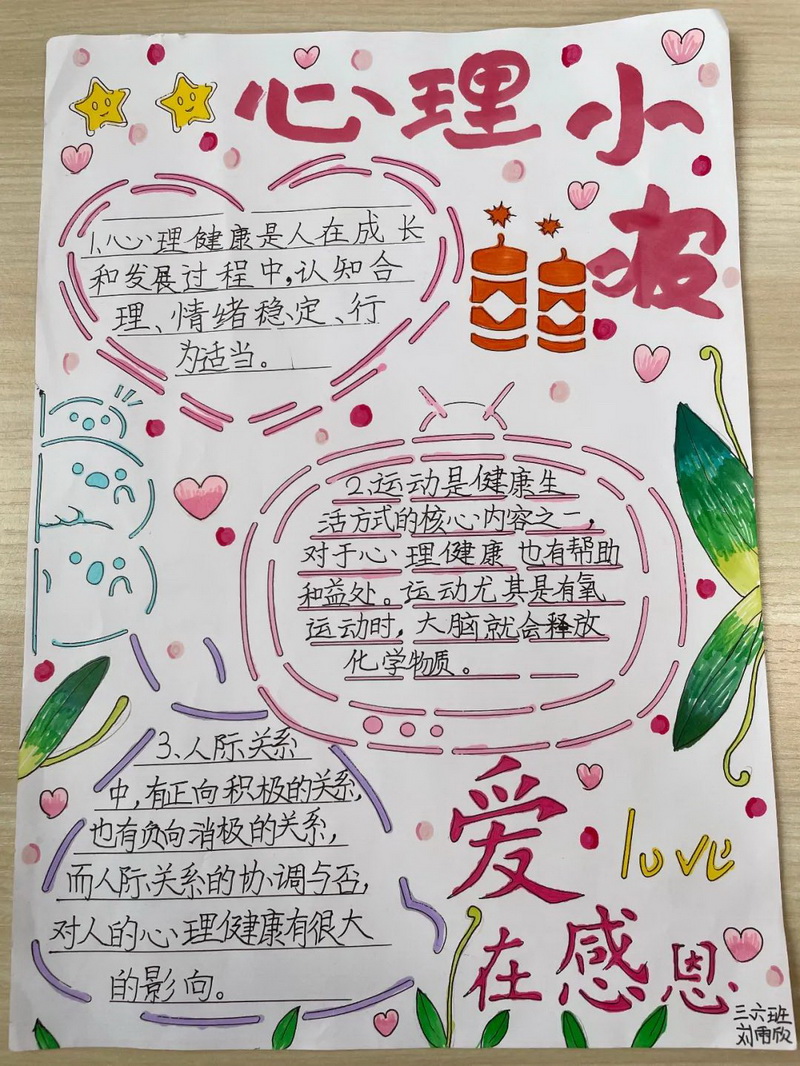 心理小报
1.心理健康是人在成长
和发展过程中,认知合
理、情绪稳定、行
为适当。
2.运动是健康生
活方式的核心内容之一,
对于心理健康也有帮助
和益处。运动尤其是有氧
运动时,大脑就会释放
化学物质。
3.人际关系
中,有正向积极的关系,
也有负向消极的关系,
而人际关系的协调与否,
对人的心理健康有很大
的影向。
爱
love
在感恩
三六班
刘雨欣